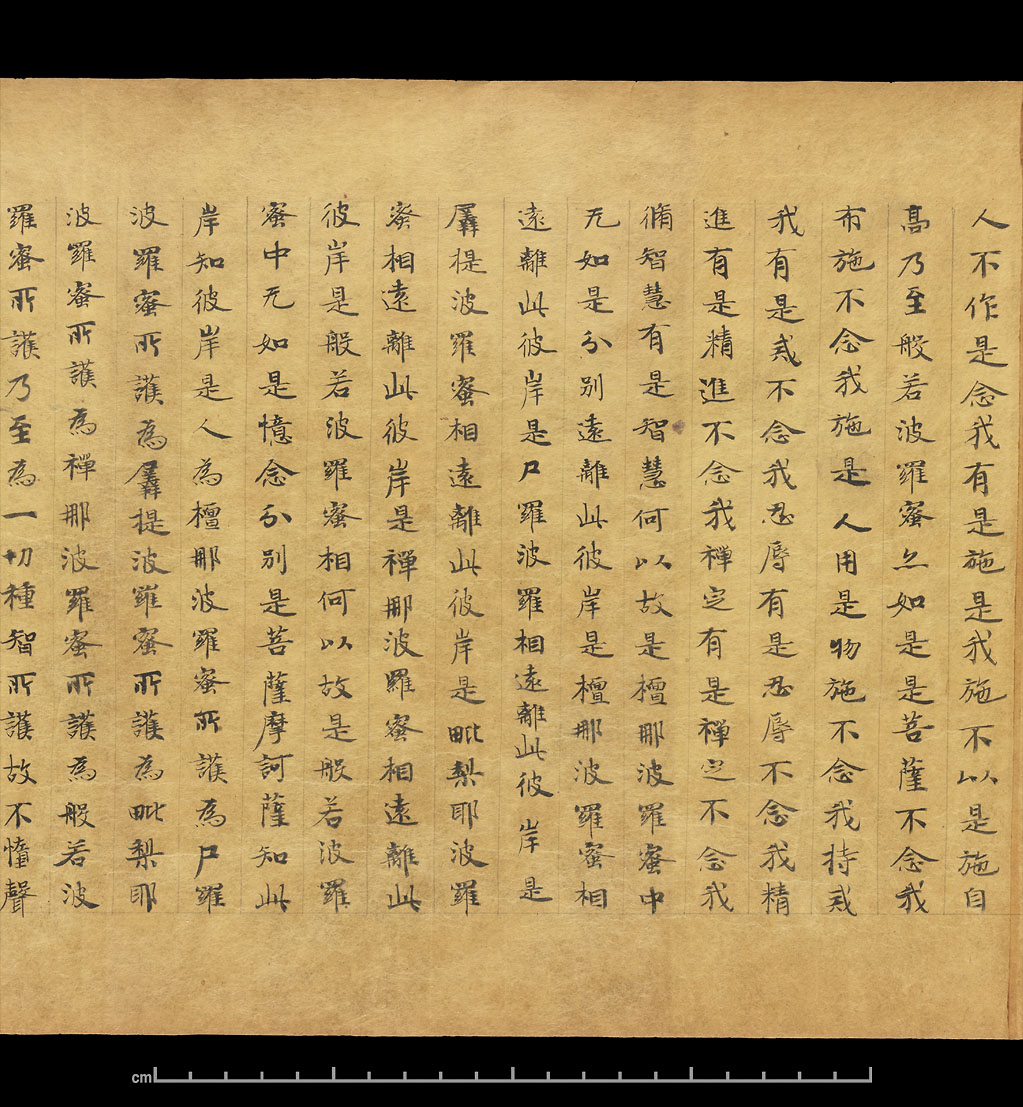 人不作是念我有是施是我施不以是施自
髙乃至般若波羅蜜亦如是是菩薩不念我
布施不念我施是人用是物施不念我持戒
我有是戒不念我忍辱有是忍辱不念我精
進有是精進不念我禪定有是禪定不念我
脩智慧有是智慧何以故是檀那波羅蜜中
无如是分別遠離此彼岸是檀那波羅蜜相
遠離此彼岸是尸羅波羅相遠離此彼岸是
羼提波羅蜜相遠離此彼岸是毗梨耶波羅
蜜相遠離此彼岸是禪那波羅蜜相遠離此
彼岸是般若波羅蜜相何以故是般若波羅
蜜中无如是憶念分別是菩薩摩訶薩知此
岸知彼岸是人為檀那波羅蜜所護為尸羅
波羅蜜所護為羼提波羅蜜所護為毗梨耶
波羅蜜所護為禪那波羅蜜所護為般若波
羅蜜所護乃至為一切種智所護故不憧聲
cm